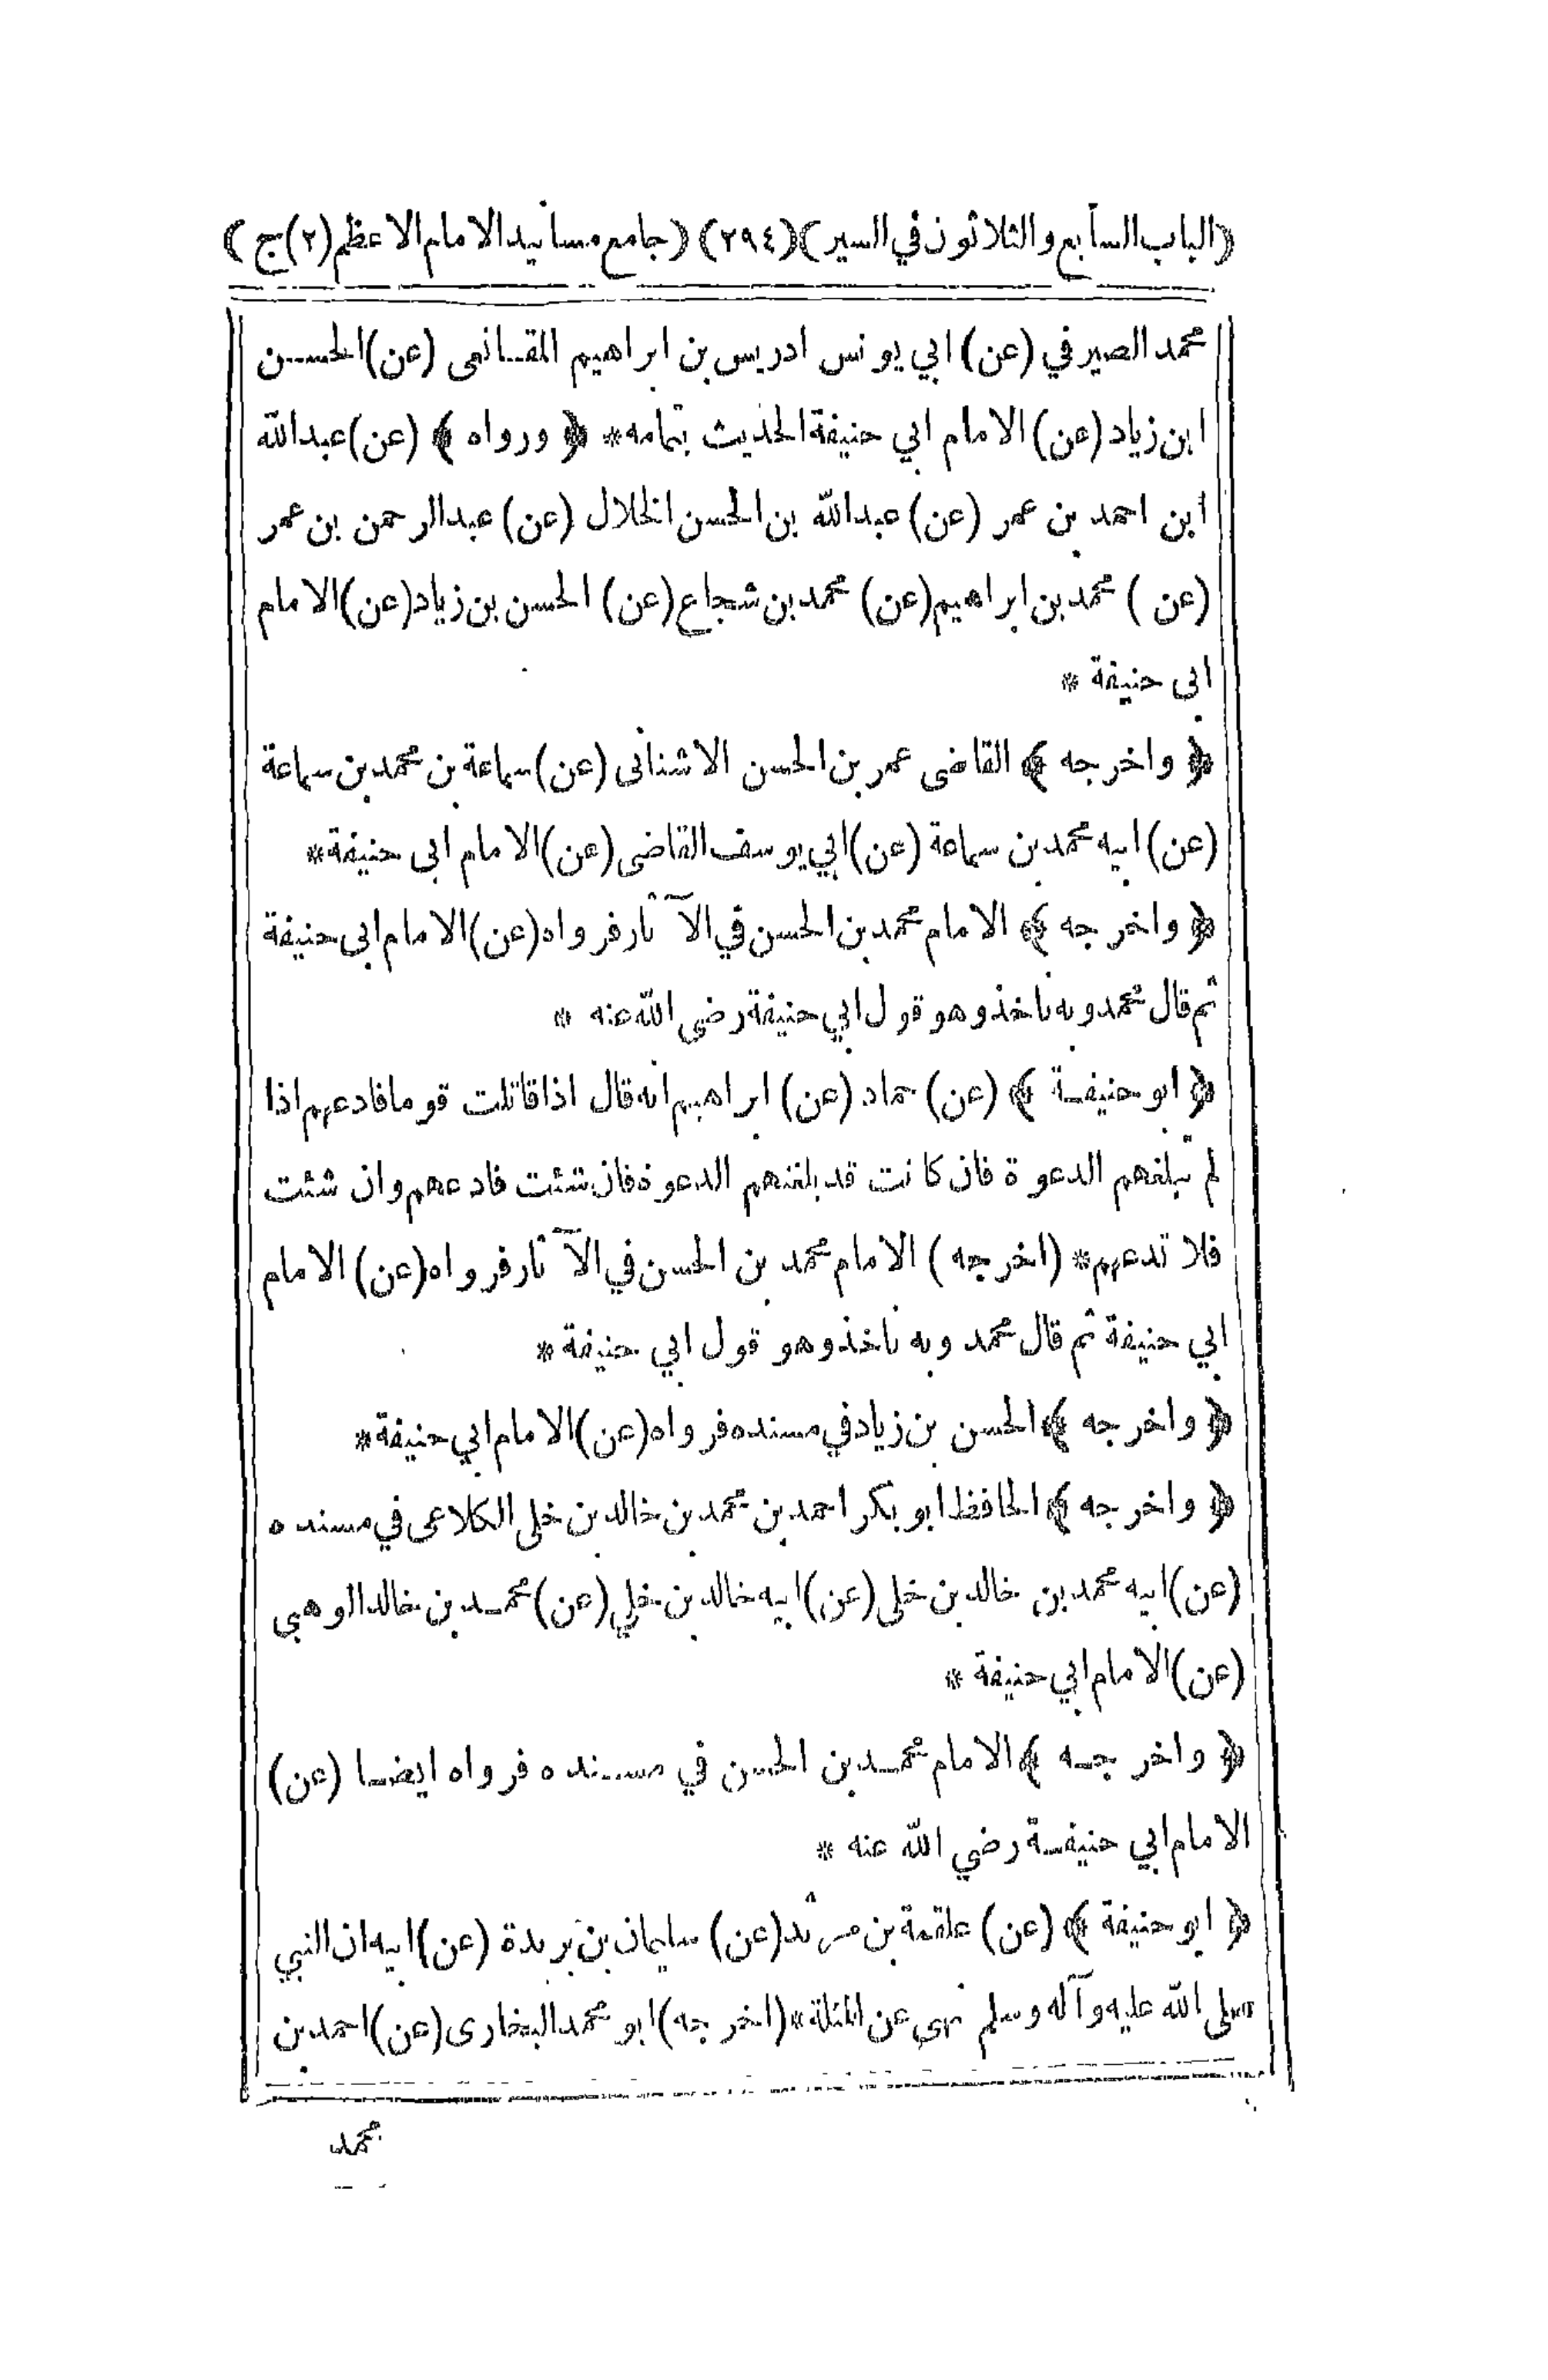 ﴿الباب السابع والثلاثون في السير﴾ (٢٩٤) ﴿جامع مسانيد الامام الاعظم (٢)ج﴾
محمد الصيرفي (عن) ابي يونس ادريس بن ابراهيم المقانعى (عن) الحسن
ابن زياد (عن) الامام ابي حنيفة الحديث بتمامه* ﴿ ورواه ﴾ (عن) عبد الله
ابن احمد بن عمر (عن) عبد الله بن الحسن الخلال (عن) عبد الرحمن بن عمر
(عن) محمد بن ابراهيم (عن) محمد بن شجاع (عن) الحسن بن زياد (عن) الامام
ابى حنيفة *
﴿ واخرجه ﴾ القاضى عمر بن الحسن الاشنانى (عن) سماعة بن محمد بن سماعة
(عن) ابيه محمد بن سماعة (عن) ابي يوسف القاضى (عن) الامام ابى حنيفة*
﴿ واخرجه ﴾ الامام محمد بن الحسن في الآثار فرواه (عن) الامام ابى حنيفة
ثم قال محمد وبه ناخذ وهو قول ابي حنيفة رضى الله عنه *
﴿ ابو حنيفة ﴾ (عن) حماد (عن) ابراهيم انه قال اذا قاتلت قوما فادعهم اذا
لم تبلغهم الدعوة فان كانت قد بلغتهم الدعوة فان شئت فادعهم وان شئت
فلا تدعهم* (اخرجه) الامام محمد بن الحسن في الآثار فرواه (عن) الامام
ابي حنيفة ثم قال محمد وبه ناخذ وهو قول ابي حنيفة *
﴿ واخرجه ﴾ الحسن بن زياد في مسنده فرواه (عن) الامام ابي حنيفة*
﴿ واخرجه ﴾ الحافظ ابو بكر احمد بن محمد بن خالد بن خلى الكلاعى في مسنده
(عن) ابيه محمد بن خالد بن خلى (عن) ابيه خالد بن خلي (عن) محمد بن خالد الوهبى
(عن) الامام ابي حنيفة *
﴿ واخرجه ﴾ الامام محمد بن الحسن في مسنده فرواه ايضا (عن)
الامام ابي حنيفة رضي الله عنه *
﴿ ابو حنيفة ﴾ (عن) علقمة بن مرثد (عن) سليمان بن بريدة (عن) ابيه ان النبي
صلى الله عليه وآله وسلم نهى عن المثلة* (اخرجه) ابو محمد البخارى (عن) احمد بن
محمد